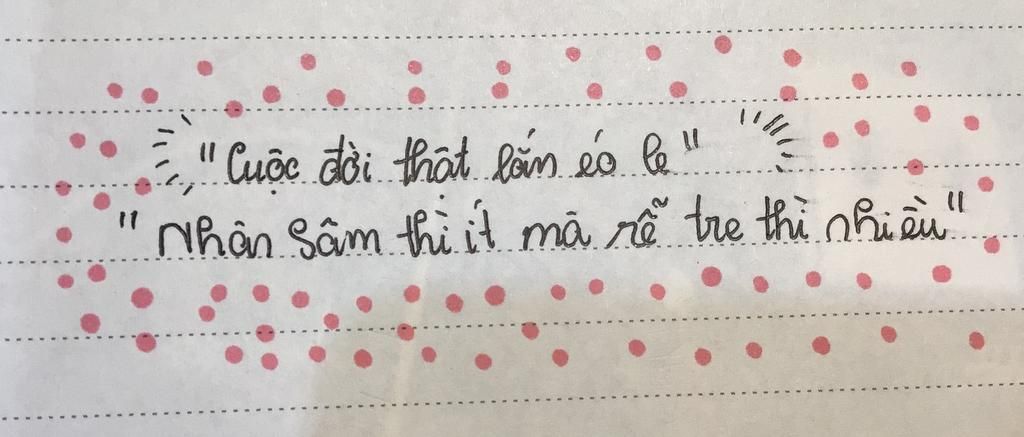 "Cuộc đời thật lắm éo le"
"Nhân sâm thì ít mà rễ tre thì nhiều"